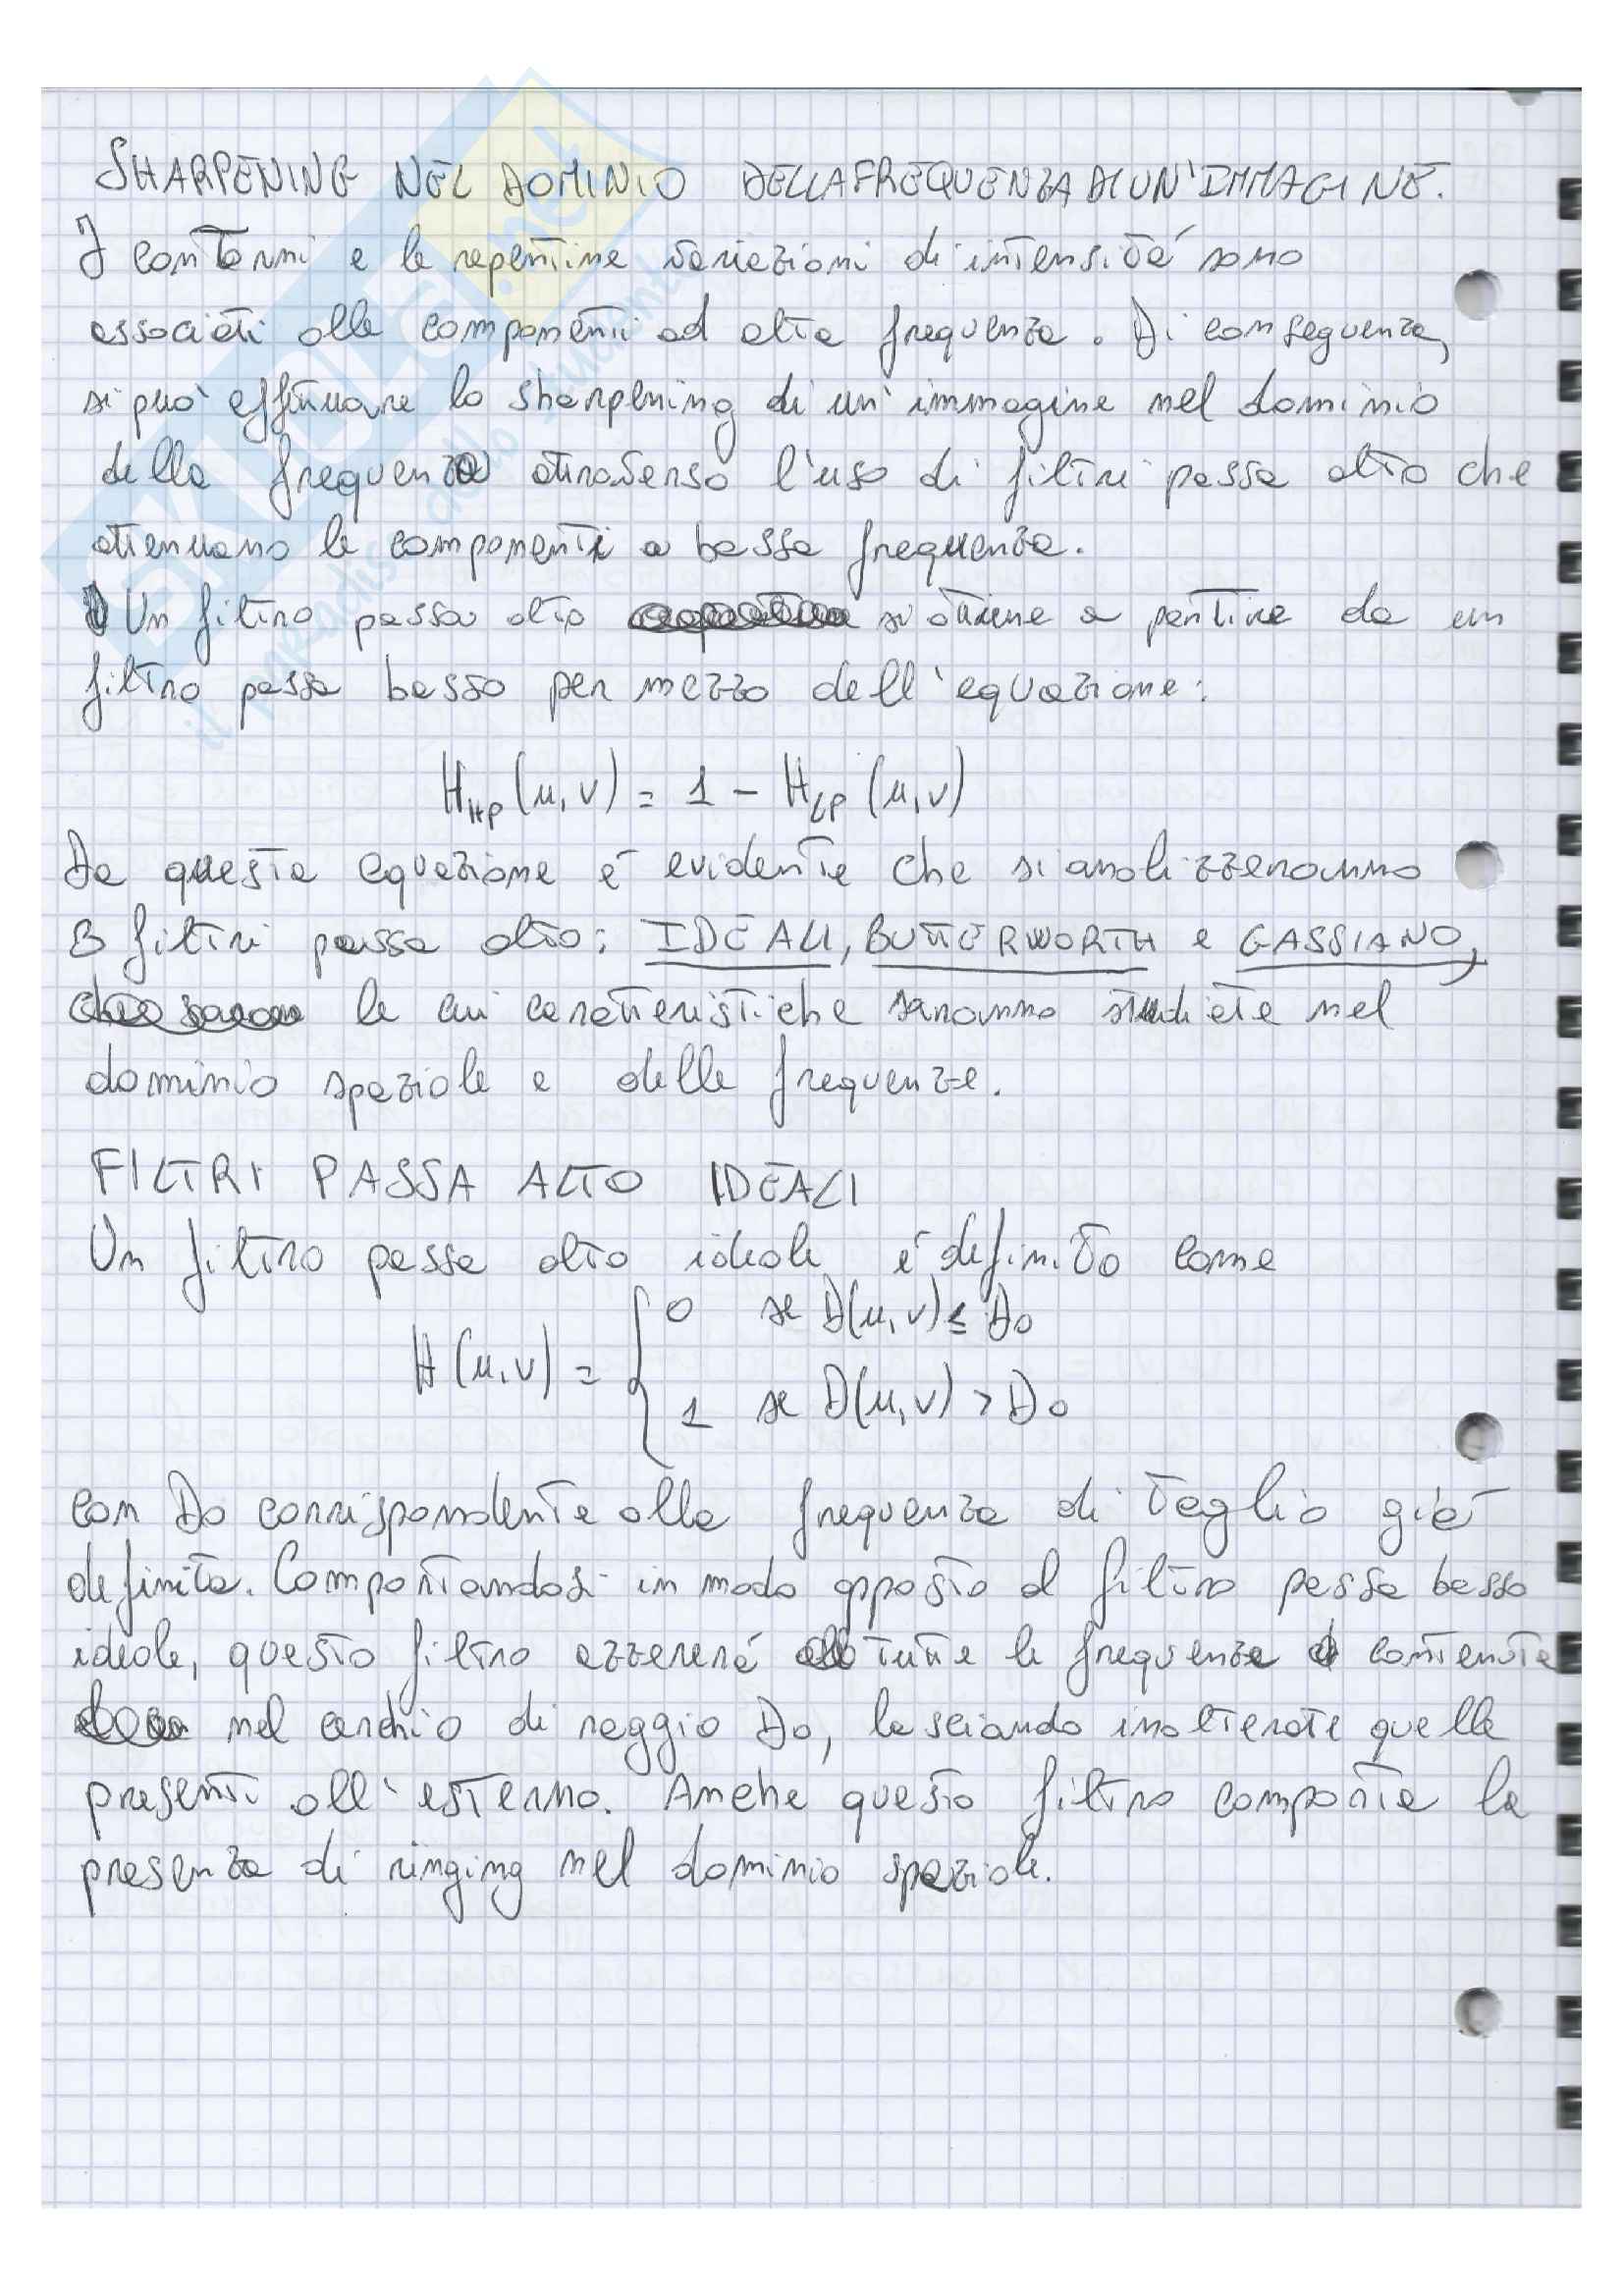 SHARPENING NEL DOMINIO DELLA FREQUENZA DI UN'IMMAGINE.
I contorni e le repentine variazioni di intensità sono
associati alle componenti ad alta frequenza. Di conseguenza,
si può effettuare lo sharpening di un'immagine nel dominio
della frequenza attraverso l'uso di filtri passa alto che
attenuano le componenti a bassa frequenza.
Un filtro passa alto si ottiene a partire da un
filtro passa basso per mezzo dell'equazione:
H_HP (u,v) = 1 - H_LP (u,v)
Da questa equazione é evidente che si analizzeranno
3 filtri passa alto: IDEALI, BUTTERWORTH e GASSIANO,
le cui caratteristiche saranno studiate nel
dominio spaziale e delle frequenze.
FILTRI PASSA ALTO IDEALI
Un filtro passa alto ideale é definito come
H(u,v) = { 0 se D(u,v) ≤ D0
1 se D(u,v) > D0
con D0 corrispondente alla frequenza di taglio già
definita. Comportandosi in modo opposto al filtro passa basso
ideale, questo filtro azzererà tutte le frequenze contenute
nel cerchio di raggio D0, lasciando inalterate quelle
presenti all'esterno. Anche questo filtro comporta la
presenza di ringing nel dominio spaziale.
SKUOLA.net
il paradiso dello studente